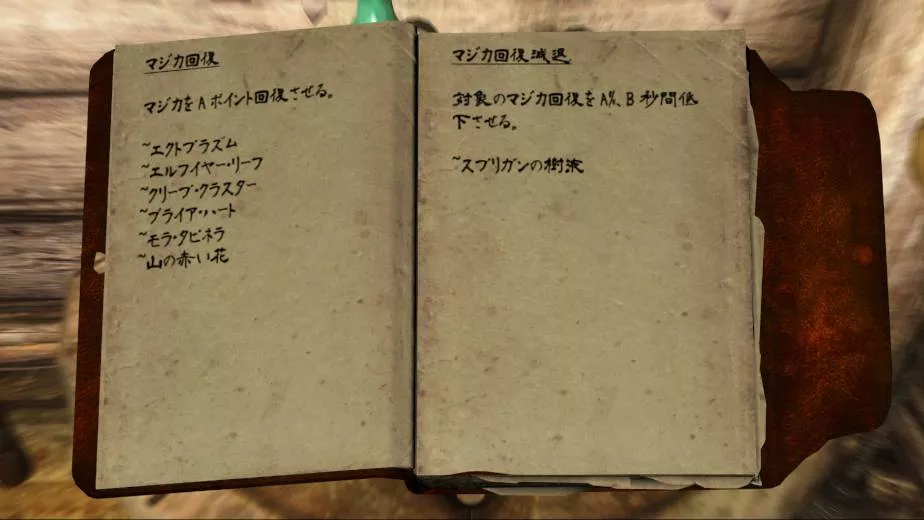 マジカ回復
マジカを A ポイント回復させる。
~エクトプラズム
~エルフイヤー・リーフ
~クリープ・クラスター
~ブライア・ハート
~モラ・タピネラ
~山の赤い花
マジカ回復減退
対象のマジカ回復を A%、B 秒間低
下させる。
~スプリガンの樹液